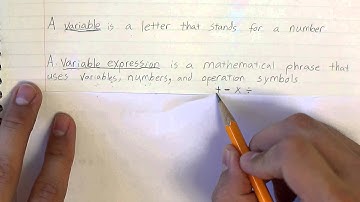 A variable is a letter that stands for a number
A variable expression is a mathematical phrase that
uses variables, numbers, and operation symbols
+ - x ÷